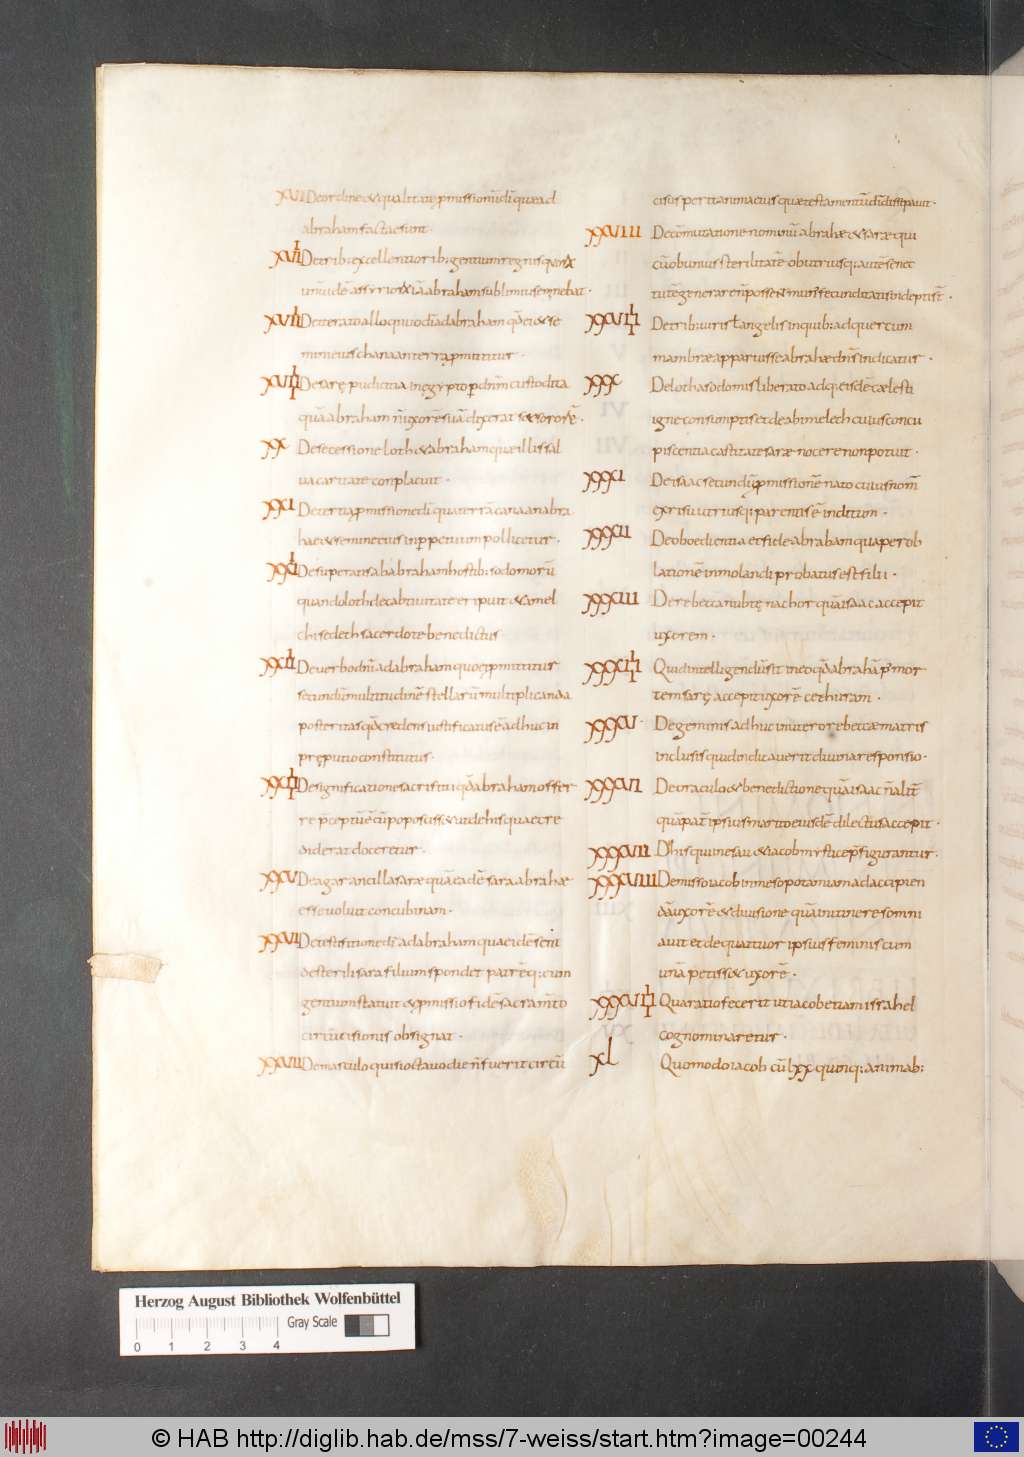 XVI De ordine & qualitate pmissionū dī quae ad
abraham factae sunt.
XVII De trib: excellentiorib; gentium regnis quorū
unū idē assyriorū iā abraham sublimius eminebat.
XVIII De iterato alloquio dī ad abraham qđ ei & se
mini eius chanaan terra pmittitur.
XVIIII De sarę pudicitia in ęgypto p dnm custodita
quā abraham n uxorē suā dixerat s& sororē.
XX De secessione loth & abraham quae illis sal
ua caritate conplacuit.
XXI De tertia pmissione dī qua terrā canaan abra
hae & semini eius in perpetuum pollicetur.
XXII De superatis ab abraham hostib: sodomorū
quando loth de cabtiuitate eripuit & a mel
chisedeth sacerdote benedictus
XXIII De uerbo dnī ad abraham quo ei pmittitur
secundū multitudinē stellarū multiplicanda
posteritas qđ credens iustificatus ē adhuc in
pręputio constitutus.
XXIIII De significatione sacrificii qđ abraham offer
re pceptū ē cū poposciss& ut de his quae cre
diderat doceretur.
XXV De agar ancilla sarae quā eadē sara abrahae
esse uoluit concubinam.
XXVI De testificatione dī ad abraham qua eidē seni
de sterili sara filium spondet patrēq: eum
gentium statuit & pmissi fidē sacramto
circūcisionis obsignat.
XXVII De masculo qui si octauo die n fuerit circū
cisus perit anima eius quia testamentū dī dissipauit.
XXVIII De cōmutatione nominū abrahae & sarae qui
cū ob unius sterilitatē ob utriusq: autē senec
tutē generare n possent munus fecunditatis indepti st.
XXVIIII De trib: uiris t angelis in quib: ad quercum
mambrae apparuisse abrahae dns indicatur.
XXX De loth a sodomis liberato adq: eisdē caelesti
igne consumptis et de abimelech cuius concu
piscentia castitati sarae nocere non potuit.
XXXI De isaac secundū pmissionē nato cui us nom
ex risu utriusq: parentis ē inditum.
XXXII De oboedientia et fide abraham qua per ob
lationē inmolandi probatus est filii.
XXXIII De rebecca nubtę nachor quā isaac accepit
uxorem.
XXXIIII Quid intelligendū sit in eo qđ abrahā p mor
tem sarę accepit uxorē cethuram.
XXXV De geminis adhuc in utero rebeccae matris
inclusis quid indicauerit diuina responsio.
XXXVI De oraculo & benedictione quā isaac n alit
quā pat ipsius marito eiusdē dilectus accepit.
XXXVII D his qui in esau & iacob mystice pfigurantur.
XXXVIII De misso iacob in mesopotamiam ad accipien
dā uxorē & de uisione quā in itinere somni
auit et de quattuor ipsius feminis cum
unā petiss& uxorē.
XXXVIIII Qua ratio fecerit ut iacob etiam israhel
cognominaretur.
XL Quomodo iacob cū lxx quinq: animab:
Herzog August Bibliothek Wolfenbüttel
Gray Scale
0 1 2 3 4
© HAB http://diglib.hab.de/mss/7-weiss/start.htm?image=00244